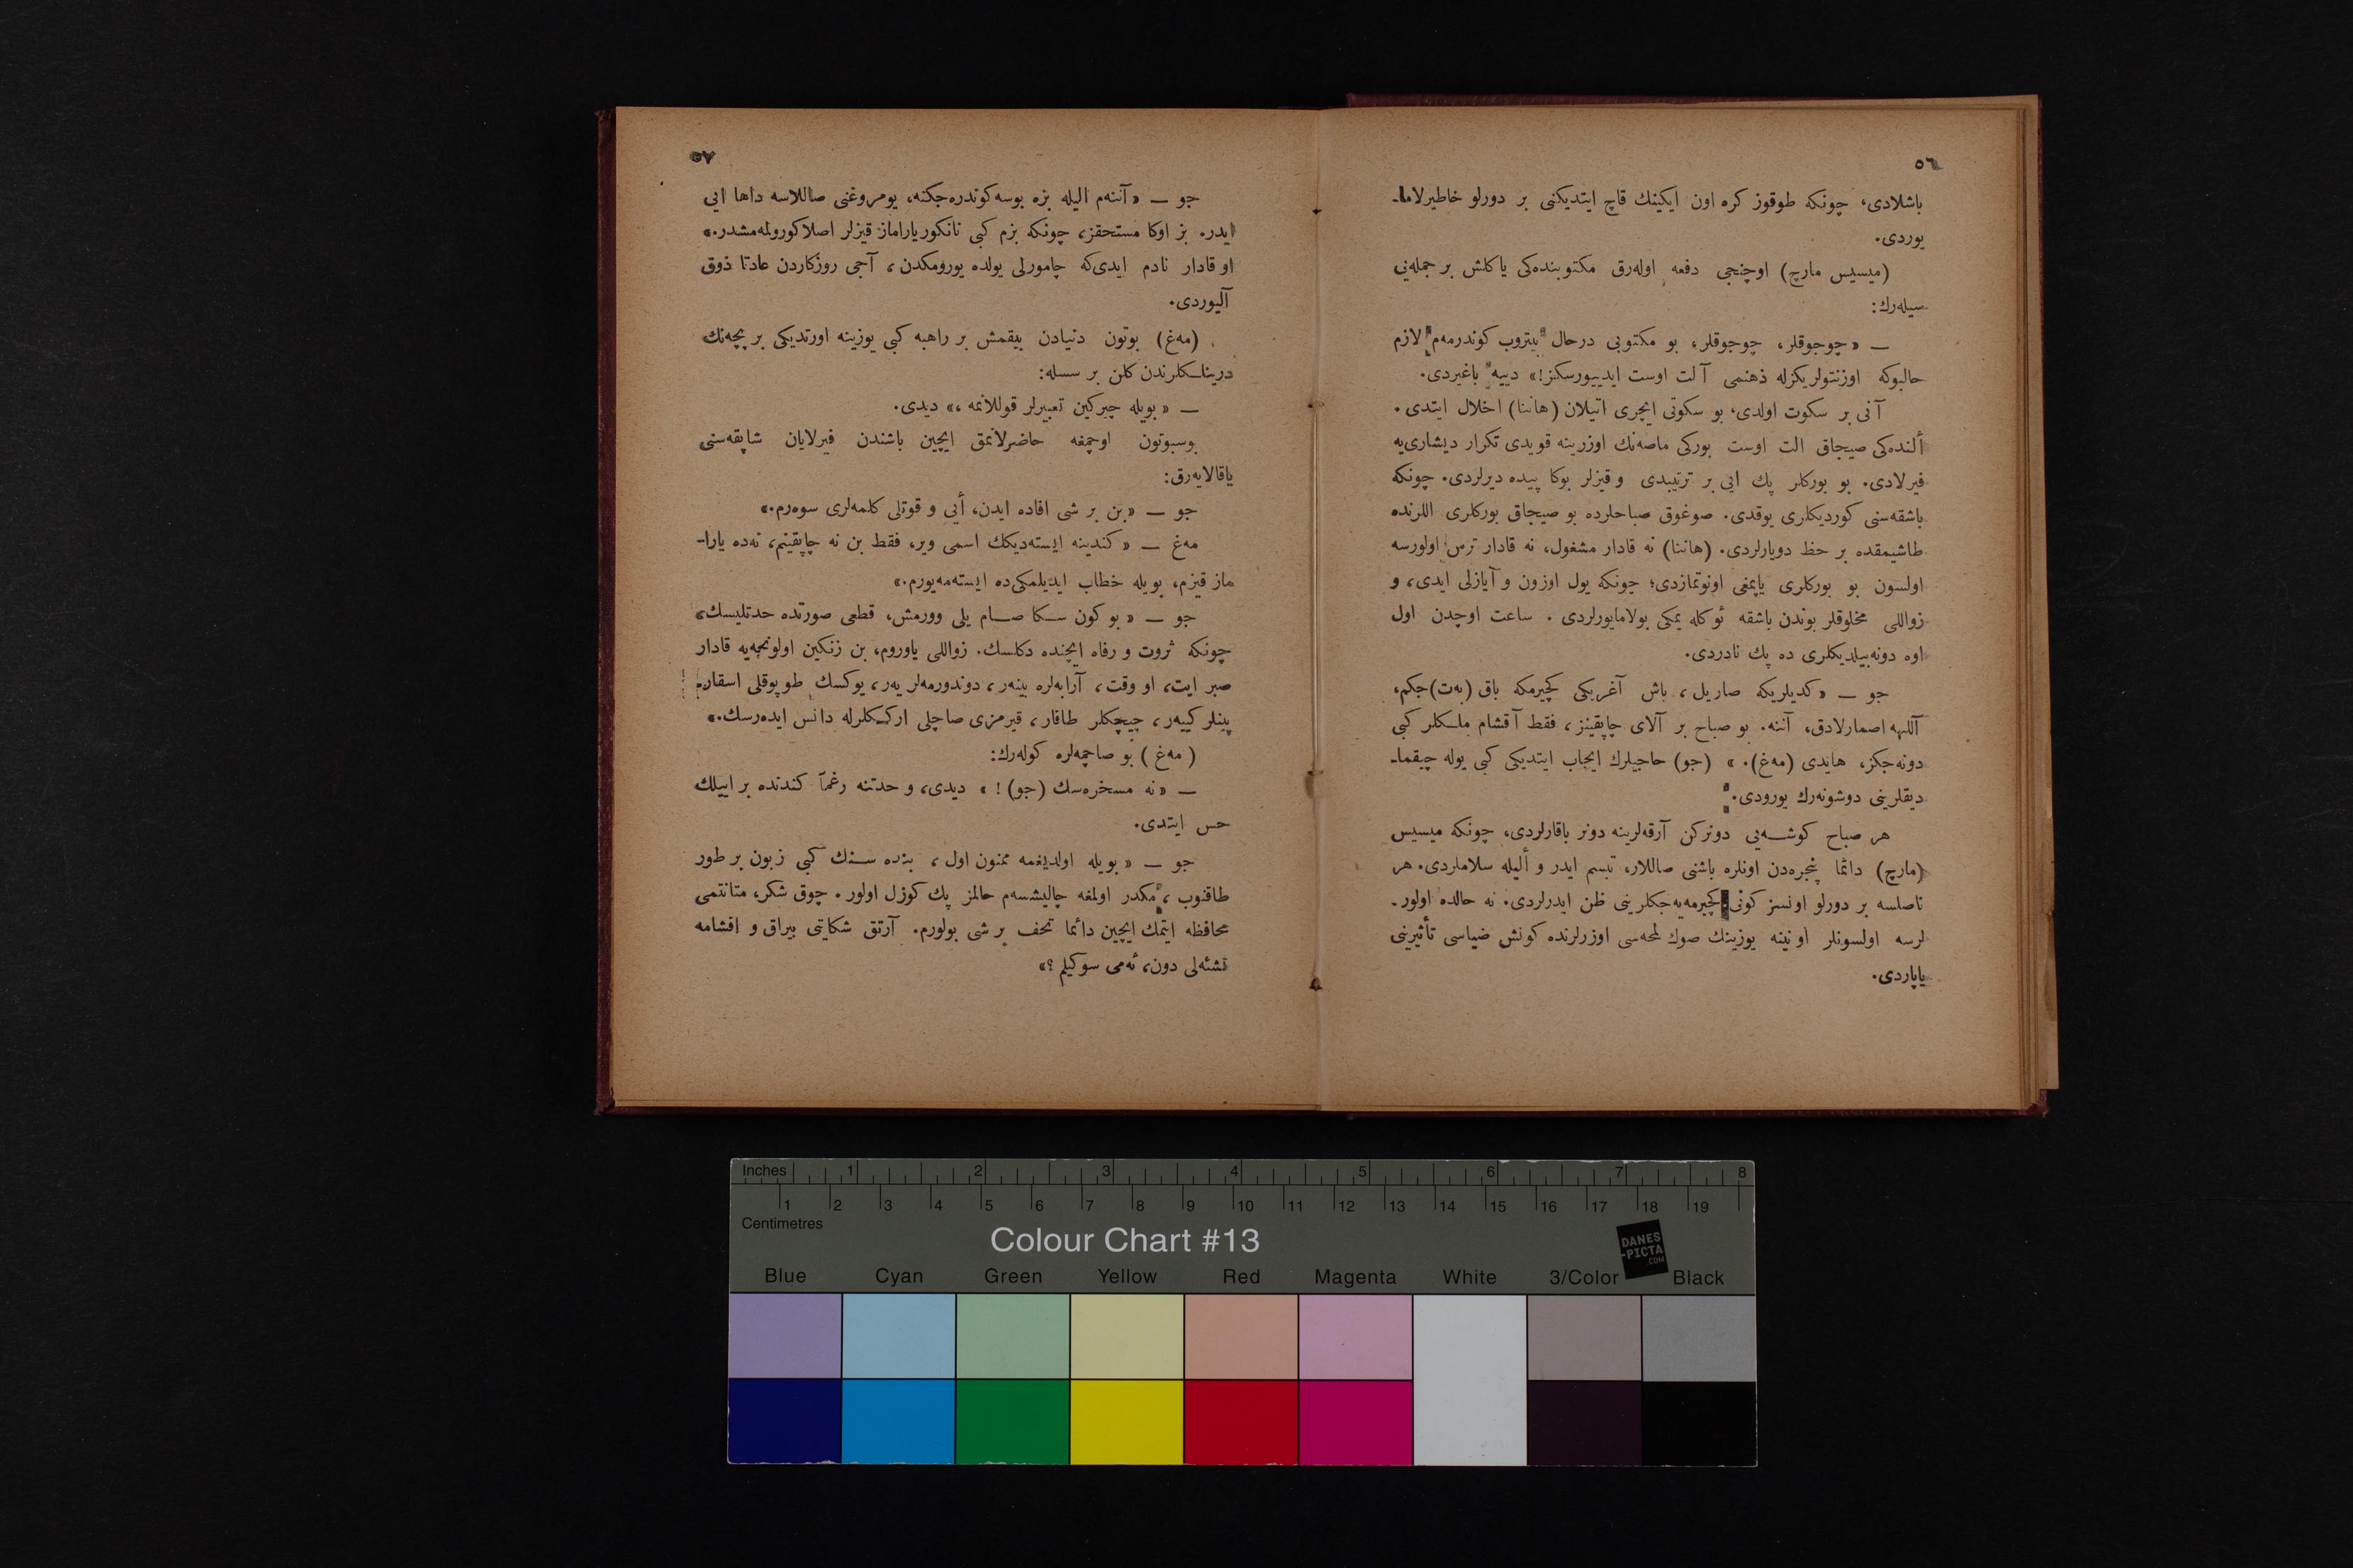 ٥٦
باشلادی، چونکه طوقوز کره اون ایکینك قاچ ایتدیکنی بر دورلو خاطیرلاما-
یوردی.
(میسیس مارچ) اوچنجی دفعه اوله‌رق مکتوبنده‌کی یاکلش بر جمله‌یی
سیله‌رك:
— «چوجوقلر، چوجوقلر، بو مکتوبی درحال بیتروب کوندرمه‌م لازم
حالبوکه اوزنتولریکزله ذهنمی آلت اوست ایدییورسکز!» دییه باغیردی.
آنی بر سکوت اولدی، بو سکوتی ایچری آتیلان (هاننا) اخلال ایتدی.
ألنده‌کی صیجاق الت اوست بورکی ماصه‌نك اوزرینه قویدی تکرار دیشاری‌یه
فیرلادی. بو بورکلر پك ایی بر ترتیبدی و قیزلر بوکا پیده دیرلردی. چونکه
باشقه‌سنی کوردیکلری یوقدی. صوغوق صباحلرده بو صیجاق بورکلری اللرنده
طاشیمقده بر حظ دویارلردی. (هاننا) نه قادار مشغول، نه قادار ترس اولورسه
اولسون بو بورکلری یاپمغی اونوتمازدی؛ چونکه یول اوزون و آیازلی ایدی، و
زواللی مخلوقلر بوندن باشقه ئوکله یمکی بولامایورلردی. ساعت اوچدن اول
اوه دونه‌بیلدیکلری ده پك نادردی.
جو — «کدیلریکه صاریل، باش آغریکی کچیرمکه باق (به‌ت)جکم،
آللهه اصمارلادق، آننه. بو صباح بر آلای چاپقینز، فقط آقشام ملکلر کبی
دونه‌جکز، هایدی (مه‌غ).» (جو) حاجیلرك ایجاب ایتدیکی کبی یوله چیقما-
دیقلرینی دوشونه‌رك یورودی.
هر صباح کوشه‌یی دونرکن آرقه‌لرینه دونر باقارلردی، چونکه میسیس
(مارچ) دائما پنجره‌دن اونلره باشنی صاللار، تبسم ایدر و ألیله سلاملردی. هر
ناصلسه بر دورلو اونسز کونی کچیرمه‌یه‌جکلرینی ظن ایدرلردی. نه حالده اولور-
لرسه اولسونلر او نینه یوزینك صوك لمحه‌سی اوزرلرنده کونش ضیاسی تأثیرینی
یاپاردی.
٥٧
جو — «آننه‌م الیله بزه بوسه کوندره‌جکنه، یومروغنی صاللاسه داها ایی
ایدر. بز اوکا مستحقز، چونکه بزم کبی نانکور یاراماز قیزلر اصلا کورولمه‌مشدر.»
او قادار نادم ایدی‌که چامورلی یولده یورومکدن، آجی روزکاردن عادتا ذوق
آلیوردی.
(مه‌غ) بوتون دنیادن بیقمش بر راهبه کبی یوزینه اورتدیکی بر پچه‌نك
دریناــکلرندن کلن بر سسله:
— «بویله چیرکین تعبیرلر قوللانمه،» دیدی.
بوسبوتون اوچمغه حاضرلانمق ایچین باشندن فیرلایان شاپقه‌سنی
یاقالایه‌رق:
جو — «بن بر شی افاده ایدن، أیی و قوتلی کلمه‌لری سوه‌رم.»
مه‌غ — «کندینه ایسته‌دیکك اسمی ویر، فقط بن نه چاپقینم، نه‌ده یارا-
ماز قیزم، بویله خطاب ایدیلمکی‌ده ایسته‌مه‌یورم.»
جو — «بو کون سکا صام یلی وورمش، قطعی صورتده حدتلیسك،
چونکه ثروت و رفاه ایچنده دکلسك. زواللی یاوروم، بن زنکین اولونجه‌یه قادار
صبر ایت، او وقت، آرابه‌لره بینه‌ر، دوندورمه‌لر یه‌ر، یوکسك طوپوقلی اسقار-
پینلر کییه‌ر، چیچکلر طاقار، قیرمزی صاچلی ارککلرله دانس ایده‌رسك.»
(مه‌غ) بو صاچمه‌لره کوله‌رك:
— «نه مسخره‌سك (جو)!» دیدی، و حدتنه رغماً کندنده بر اییلك
حس ایتدی.
جو — «بویله اولدیغمه ممنون اول، بنده سنك کبی زبون بر طور
طاقنوب، مکدر اولمغه چالیشسه‌م حالمز پك کوزل اولور. چوق شکر، متانتمی
محافظه ایتمك ایچین دائما تحف بر شی بولورم. آرتق شکایتی بیراق و اقشامه
نشئه‌لی دون، ئه‌می سوکیلم؟»
Inches 1 2 3 4 5 6 7 8
1 2 3 4 5 6 7 8 9 10 11 12 13 14 15 16 17 18 19
Centimetres
Colour Chart #13
DANES
-PICTA
.COM
Blue Cyan Green Yellow Red Magenta White 3/Color Black